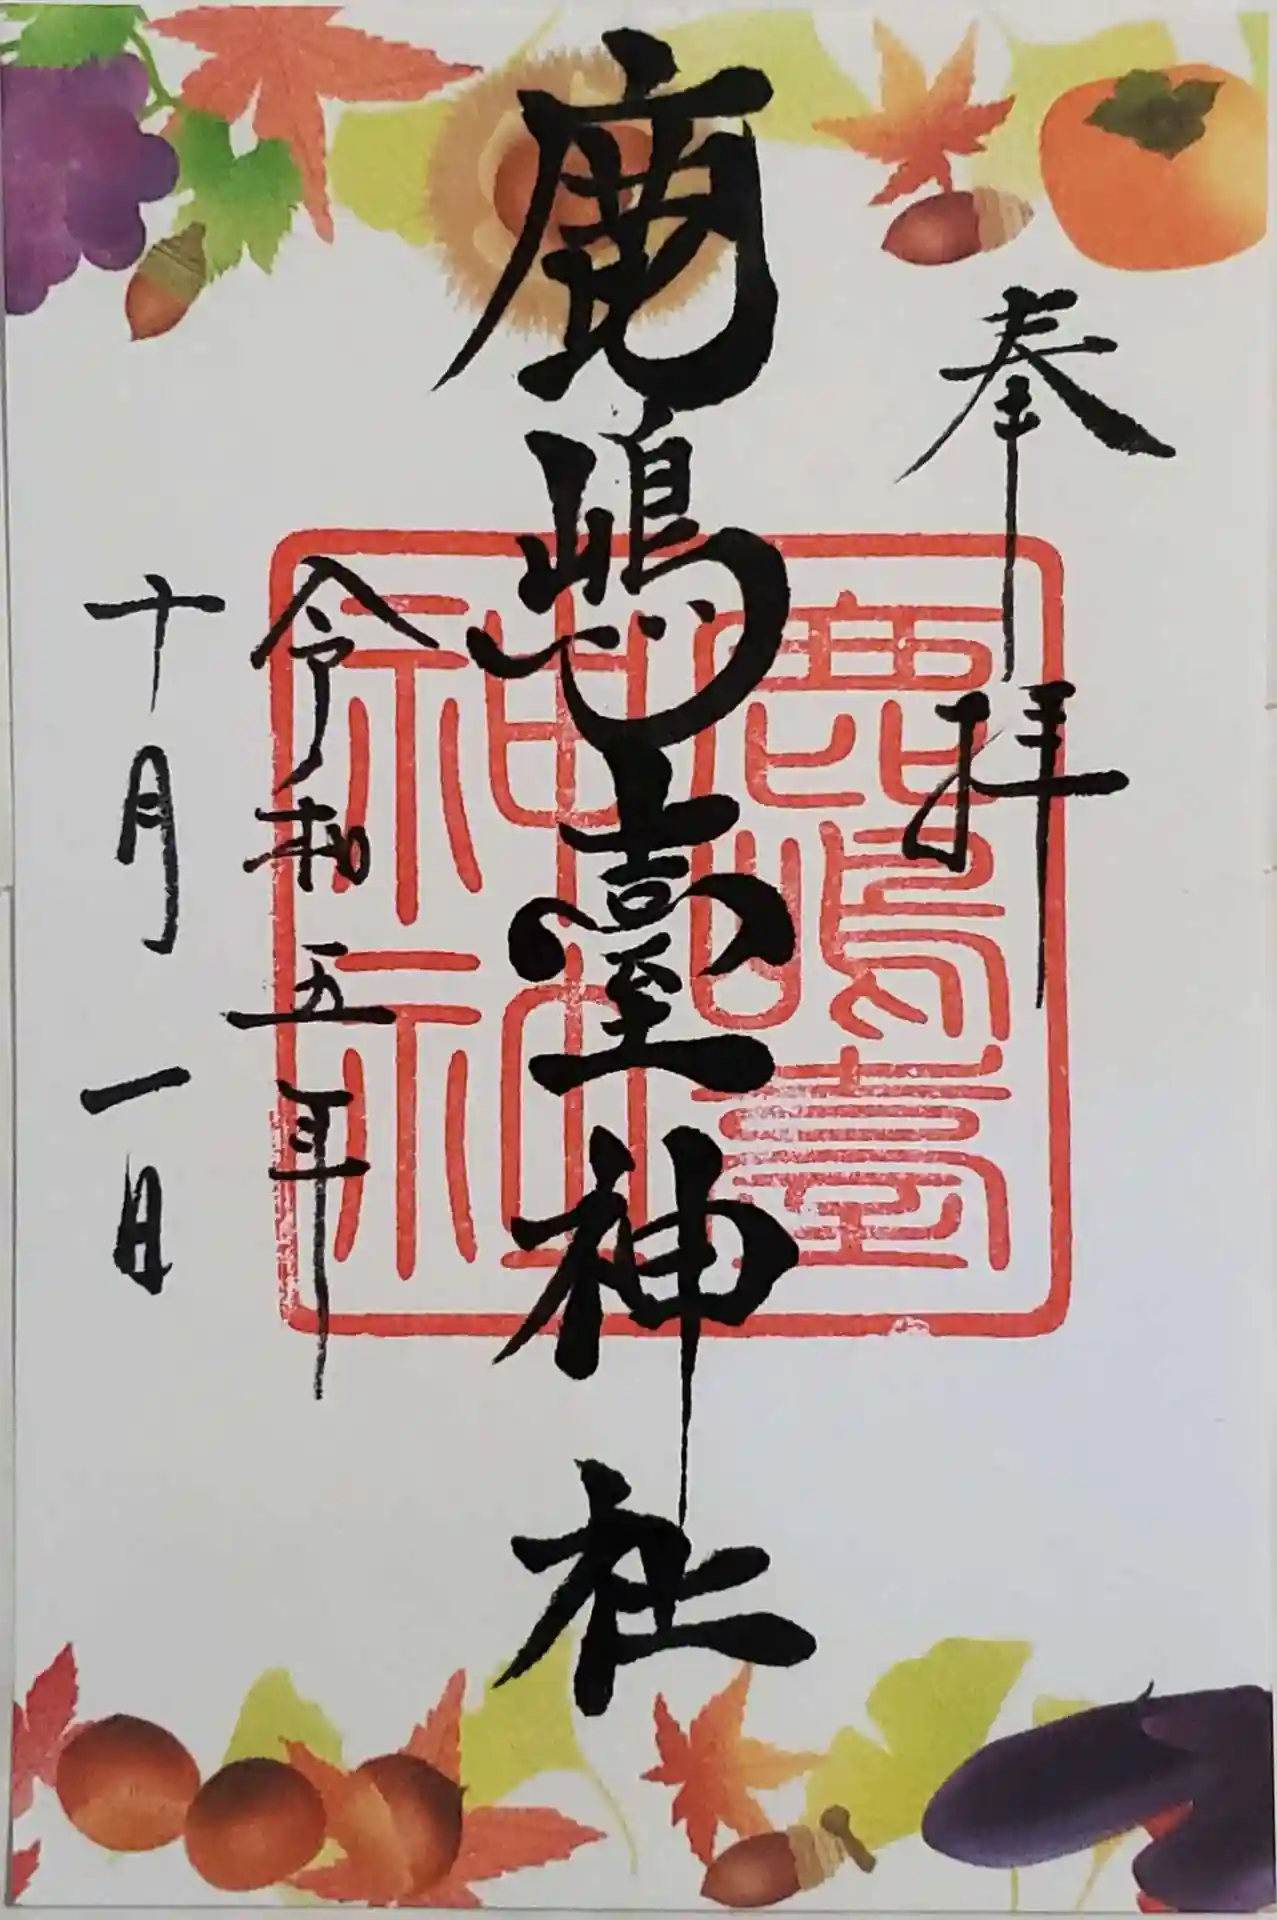 奉拝
鹿嶋臺神社
鹿嶋臺
神社
令和五年
十月一日